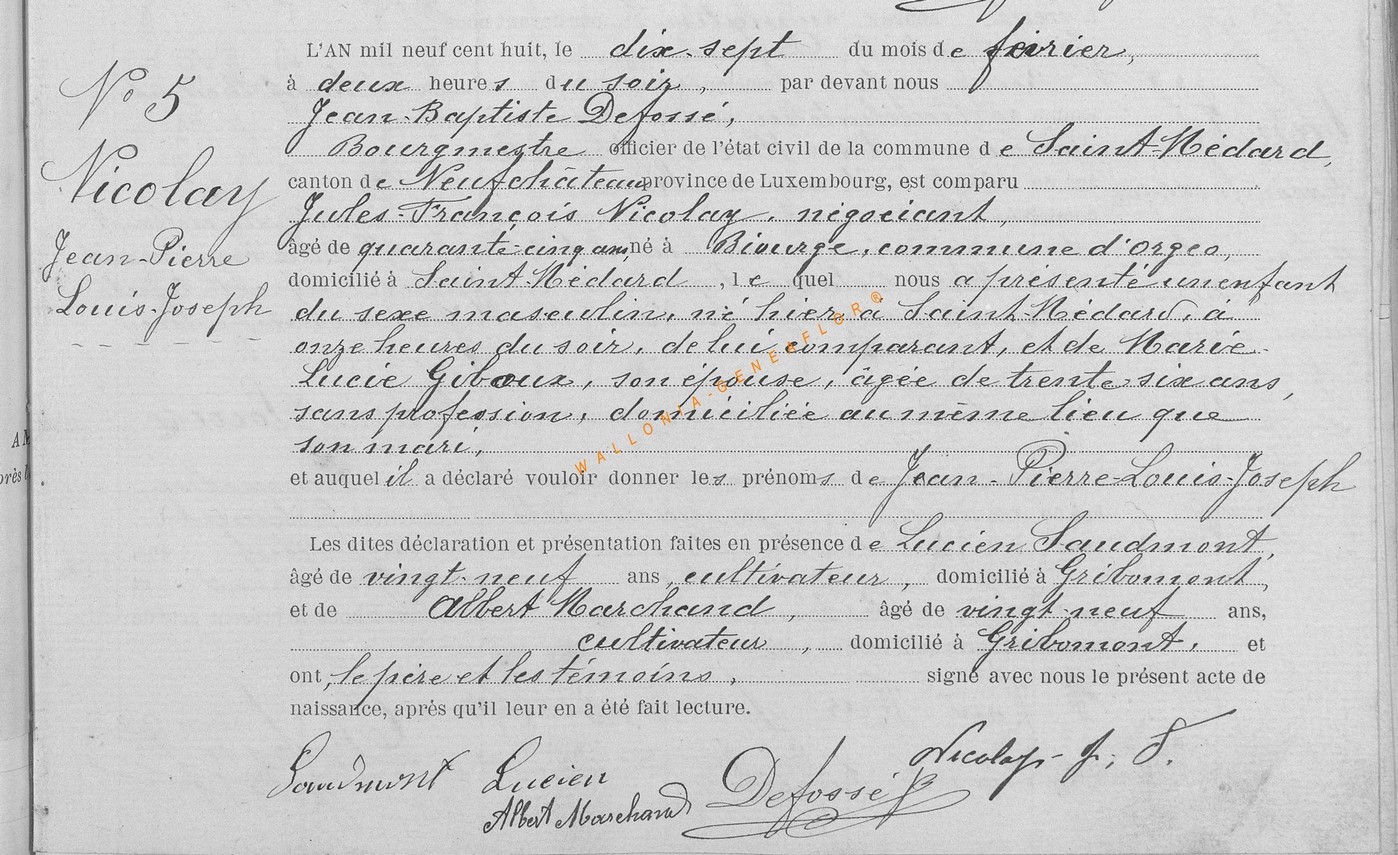 N° 5
Nicolay
Jean-Pierre
Louis-Joseph
L'AN mil neuf cent huit, le dix-sept du mois de février,
à deux heures du soir, par devant nous
Jean-Baptiste Defossé,
Bourgmestre officier de l'état civil de la commune de Saint-Médard,
canton de Neufchâteau province de Luxembourg, est comparu
Jules-François Nicolay, négociant,
âgé de quarante-cinq ans, né à Biourge, commune d'Orgeo,
domicilié à Saint-Médard, lequel nous a présenté un enfant
du sexe masculin, né hier à Saint-Médard, à
onze heures du soir, de lui comparant, et de Marie-
Lucie Giboux, son épouse, âgée de trente-six ans,
sans profession, domiciliée au même lieu que
son mari,
et auquel il a déclaré vouloir donner les prénoms de Jean-Pierre-Louis-Joseph
Les dites déclaration et présentation faites en présence de Lucien Saudmont,
âgé de vingt-neuf ans, cultivateur, domicilié à Gribomont,
et de Albert Marchand, âgé de vingt-neuf ans,
cultivateur, domicilié à Gribomont, et
ont, le père et les témoins, signé avec nous le présent acte de
naissance, après qu'il leur en a été fait lecture.
Saudmont Lucien
Albert Marchand
Defossé JB
Nicolay-J. F.
WALLONIA-GENEAFLOR®